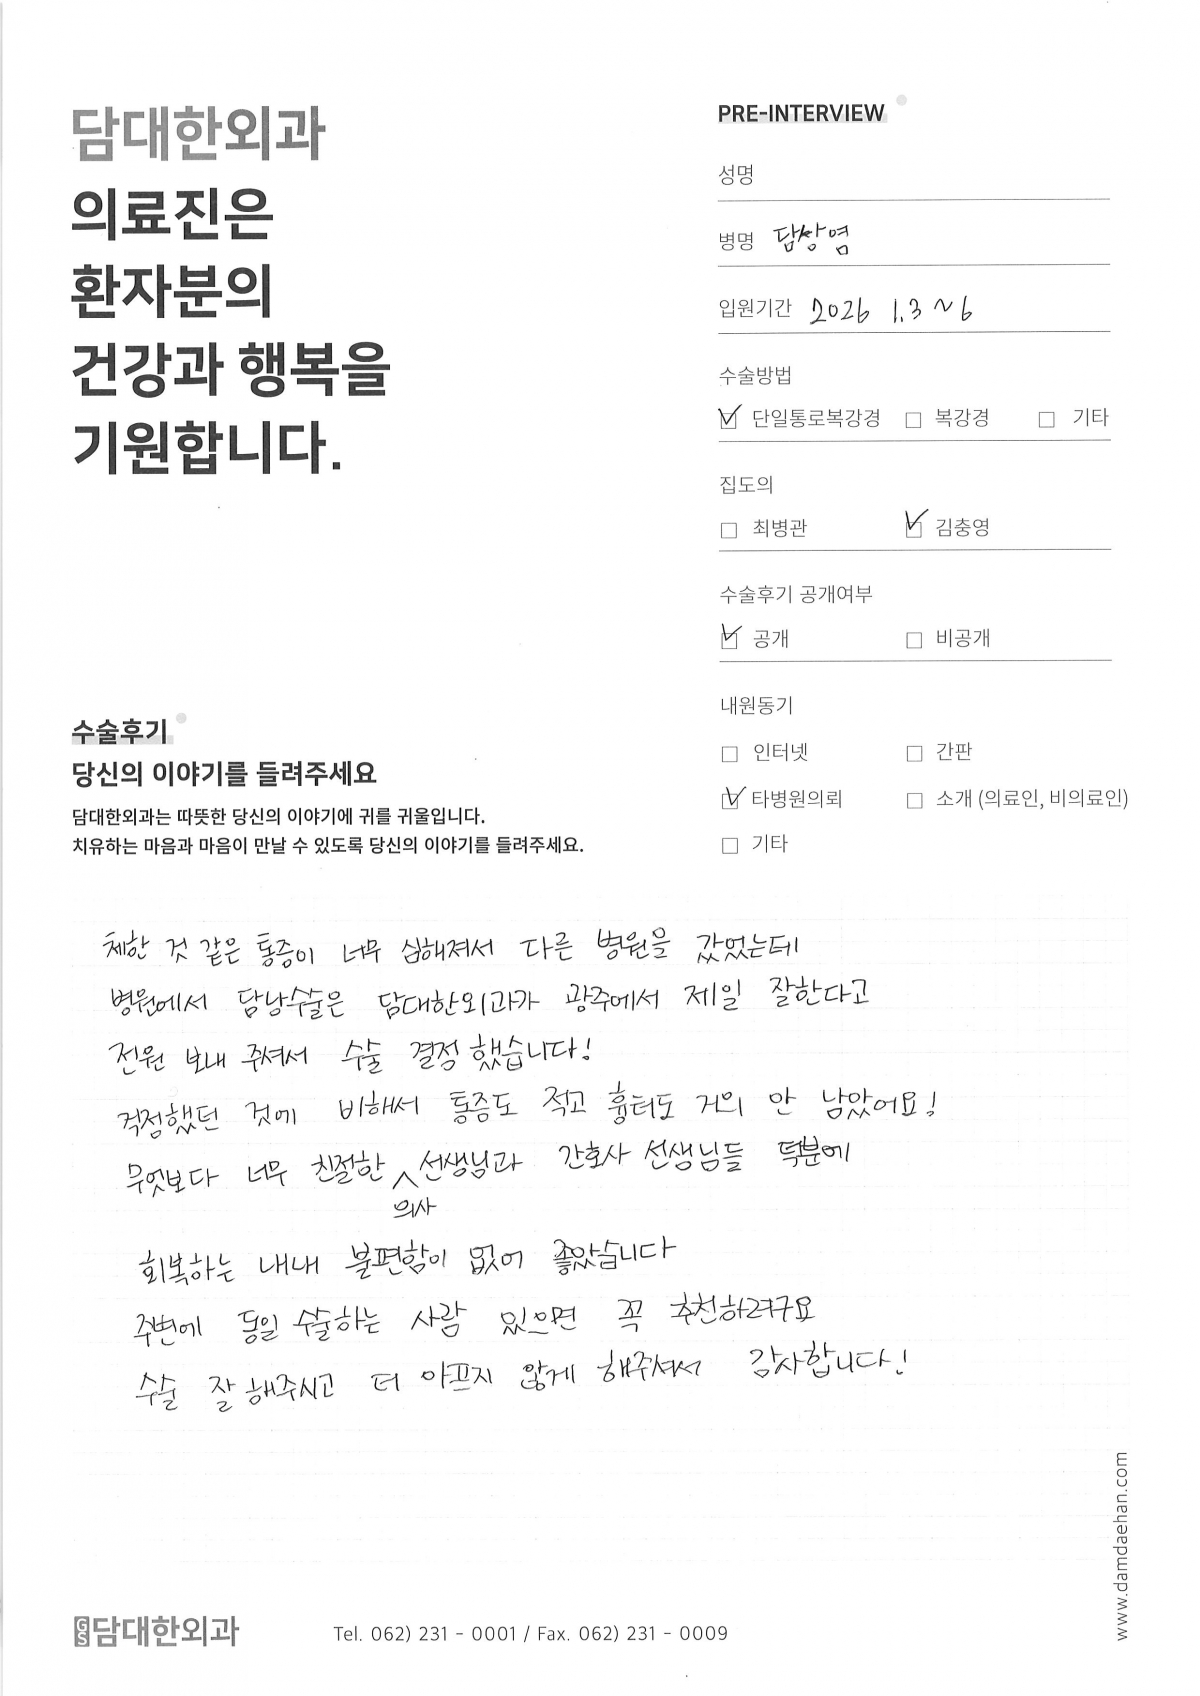 담대한외과
의료진은
환자분의
건강과 행복을
기원합니다.
PRE-INTERVIEW
성명
병명 담낭염
입원기간 2026 1.3 ~ 6
수술방법
☑ 단일통로복강경 □ 복강경 □ 기타
집도의
□ 최병관 ☑ 김충영
수술후기 공개여부
☑ 공개 □ 비공개
내원동기
□ 인터넷 □ 간판
☑ 타병원의뢰 □ 소개 (의료인, 비의료인)
□ 기타
수술후기
당신의 이야기를 들려주세요
담대한외과는 따뜻한 당신의 이야기에 귀를 귀울입니다.
치유하는 마음과 마음이 만날 수 있도록 당신의 이야기를 들려주세요.
체한 것 같은 통증이 너무 심해져서 다른 병원을 갔었는데
병원에서 담낭수술은 담대한외과가 광주에서 제일 잘한다고
전원 보내 주셔서 수술 결정 했습니다!
걱정했던 것에 비해서 통증도 적고 흉터도 거의 안 남았어요!
무엇보다 너무 친절한 의사 선생님과 간호사 선생님들 덕분에
회복하는 내내 불편함이 없어 좋았습니다
주변에 동일 수술하는 사람 있으면 꼭 추천하려구요
수술 잘 해주시고 더 아프지 않게 해주셔서 감사합니다!
GS담대한외과
Tel. 062) 231 - 0001 / Fax. 062) 231 - 0009
www.damdaehan.com